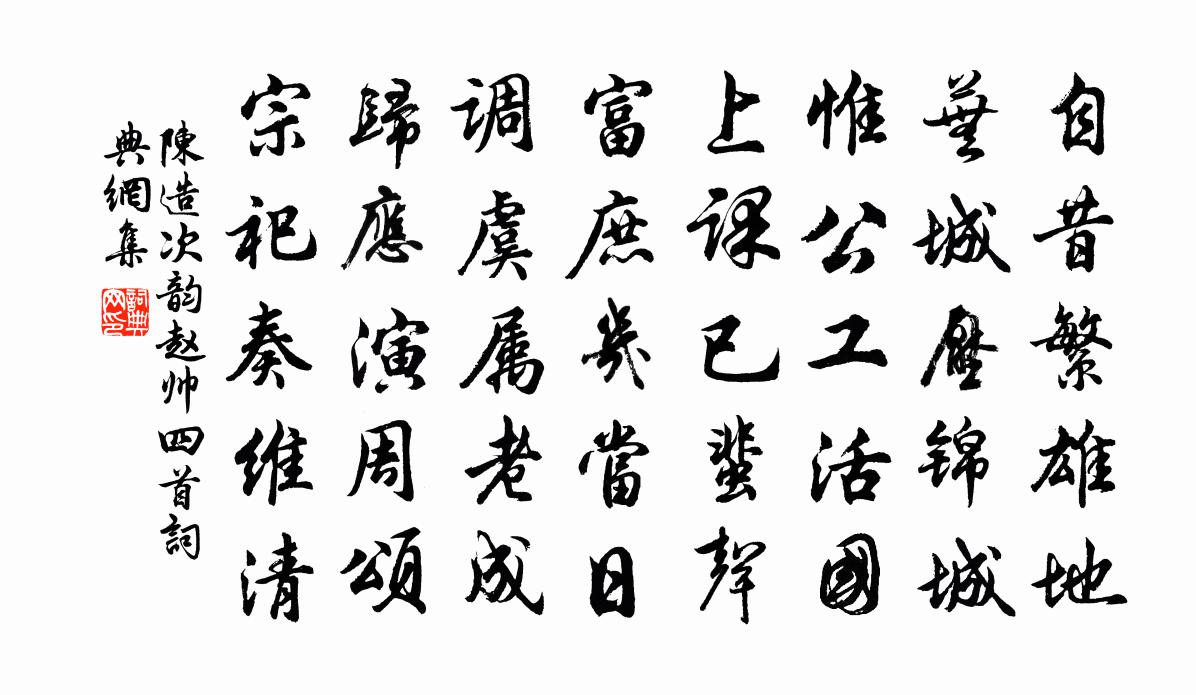 自昔繁雄地
蕪城壓锦城
惟公工活國
上課已蜚聲
富庶幾當日
调虞属老成
歸應演周頌
宗祀奏維清
陳造次韵赵帅四首詞
典網集
詞典
网印